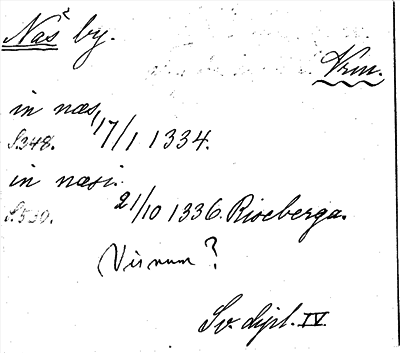 Näs² by.
Vrm.
in næs, 17/1 1334.
S.348.
in næsi.
S.530. 21/10 1336. Riseberga.
Visnum?
Sv. dipl. IV.